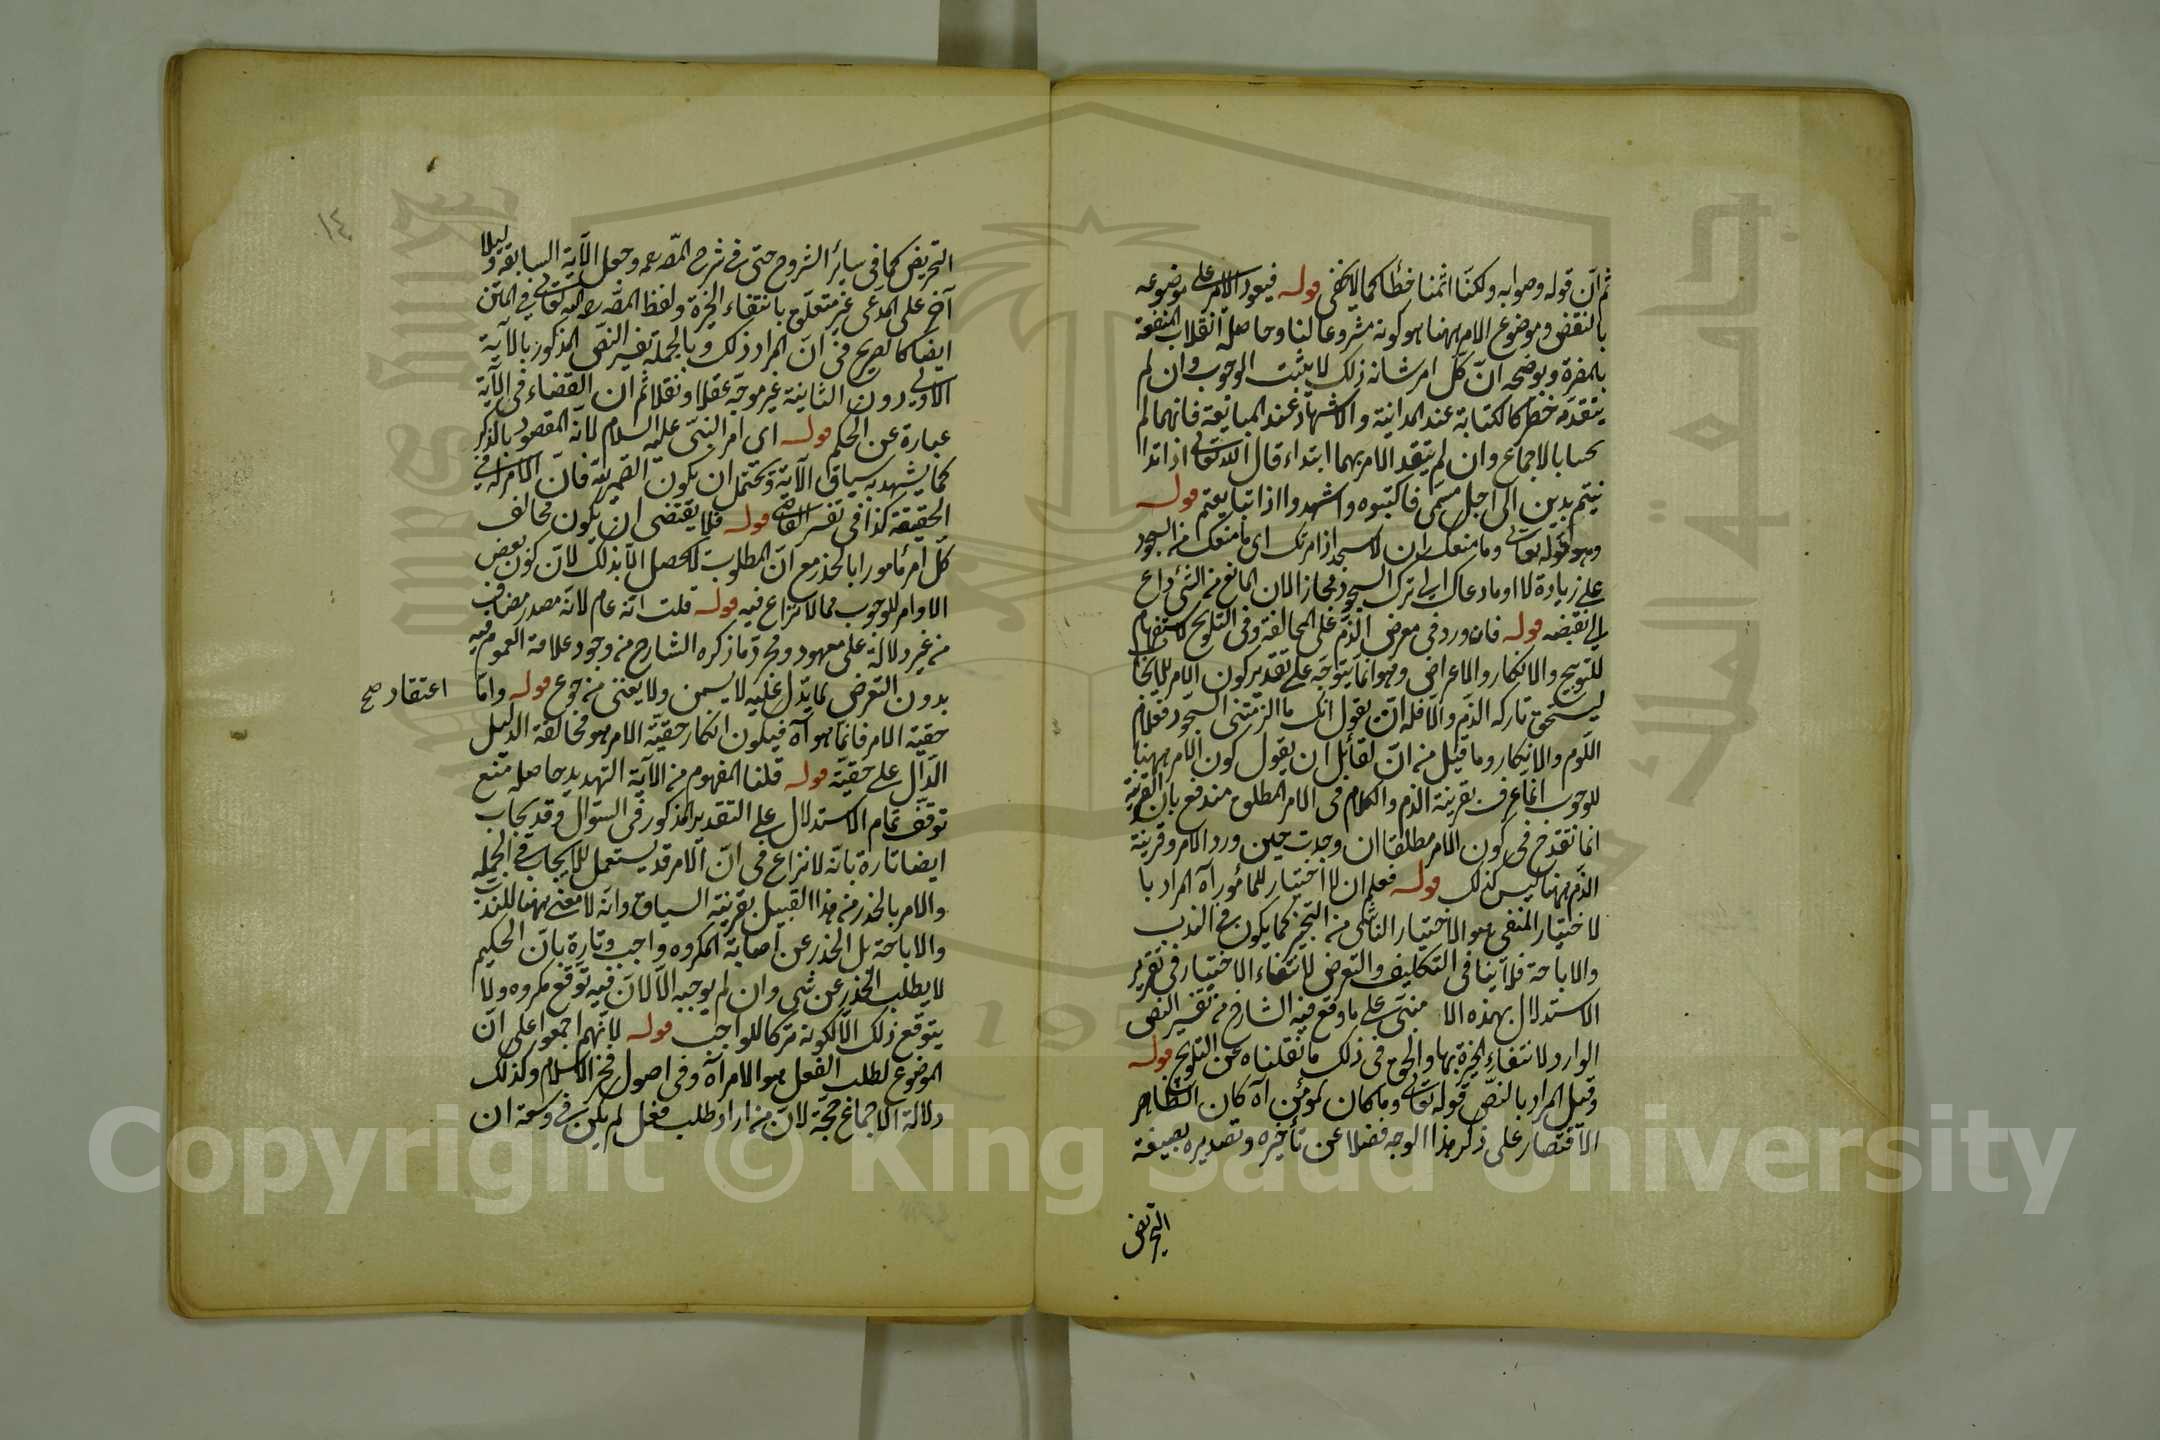 ثم ان قوله وصوابه ولكنا اثمنا خطأ كما لا يخفى قوله فيعود الامر على موضوعه
بالنقض وموضوع الامر ههنا هو كونه مشروعا لنا وحاصله انقلاب المنفعة
بالمضرة وتوضيحه ان كل امر شانه ذلك لا يثبت الوجوب وان لم
يتقدمه خطر كالكتابة عند المداينة والاشهاد عند المبايعة فانهما لم
يحسبا بالاجماع وان لم يتقيد الامر بهما ابتداء قال الله تعالى اذا تدا
نيتم بدين الى اجل مسمى فاكتبوه واشهدوا اذا تبايعتم قوله
وهو قوله تعالى وما منعك ان لا تسجد اذ امرتك اى ما منعك من السجود
على زيادة لا او ما دعاك الى ترك السجود مجازا لان المانع من الشئ داع
الى نقيضه قوله فان ورد فى معرض الذم على المخالفة وفى التلويح الاستفهام
للتوبيخ والانكار والاعراض وهو انما يتوجه على تقدير كون الامر للايجاب
ليستحق تاركه الذم والا فله ان يقول انك ما الزمتنى السجود فعلام
اللوم والانكار وما قيل من ان لقائل ان يقول كون الامر ههنا
للوجوب انما عرف بقرينة الذم والكلام فى الامر المطلق مندفع بان القرينة
انما تقدح فى كون الامر مطلقا ان وجدت حين ورد الامر وقرينة
الذم ههنا ليس كذلك قوله فعلم ان لا اختيار للمأمور آه المراد با
لاختيار المنفى هو الاختيار الناشى من التخيير كما يكون فى الندب
والاباحة فلا ينافى التكليف والتعرض لانتفاء الاختيار فى تقرير
الاستدلال بهذه الا منبئ على ما وقع فيه الشارح من تفسير النص
الوارد لانتفاء الخيرة بها والحق فى ذلك ما نقلناه عن التلويح قوله
وقيل المراد بالنص قوله تعالى وما كان لمؤمن آه كان الظاهر
الاقتصار على ذكر هذا الوجه فضلا عن تأخيره وتصديره بصيغة
التمريض
١٤
التمريض كما فى سائر الشروح حتى فى شرح المصه رحمه وجعل الآية السابقة دليلا
آخر على المدعى غير متعلق بانتفاء الخيرة ولفظ المصه رحمه الله تعالى فى المتن
ايضا كالصريح فى ان المراد ذلك وبالجملة تفسير النص المذكور بالآية
الاولى دون الثانية غير موجه عقلا ونقلا ثم ان القضاء فى الآية
عبارة عن الحكم قوله اى امر النبى عليه السلام لانه المقصود بالذكر
كما يشهد به سياق الآية ويحتمل ان يكون الضمير لله فان الامر له فى
الحقيقة كذا فى تفسير القاضى قوله فلا يقتضى ان يكون مخالف
كل امر مأمورا بالحذر مع ان المطلوب لا يحصل الا بذلك لان كون بعض
الاوامر للوجوب مما لا نزاع فيه قوله قلت انه عام لانه مصدر مضاف
من غير دلالة على معهود ومجرد ما ذكره الشارح من وجود علامة العموم فيه
بدون التعرض لما يدل عليه لا يسمن ولا يغنى من جوع قوله واما
اعتقاد صح
حقية الامر فانما هو آه فيكون انكار حقية الامر هو مخالفة الدليل
الدال على حقيته قوله قلنا المفهوم من الآية التهديد حاصله منع
توقف تمام الاستدلال على التقدير المذكور فى السؤال وقد يجاب
ايضا تارة بانه لا نزاع فى ان الامر قد يستعمل للايجاب فى الجملة
والامر بالحذر من هذا القبيل بقرينة السياق وانه لا معنى ههنا للندب
والاباحة بل الحذر عن اصابة المكروه واجب وتارة بان الحكيم
لا يطلب الحذر عن شئ وان لم يوجبه الا لان فيه توقع مكروه ولا
يتوقع ذلك الا لكونه تركا للواجب قوله لانهم اجمعوا على ان
الموضوع لطلب الفعل هو الامر آه وفى اصول فخر الاسلام وكذلك
دلالة الاجماع حجة لان من اراد طلب فعل لم يكن فى وسعه ان
جامعة الملك سعود
1957
Copyright © King Saud University